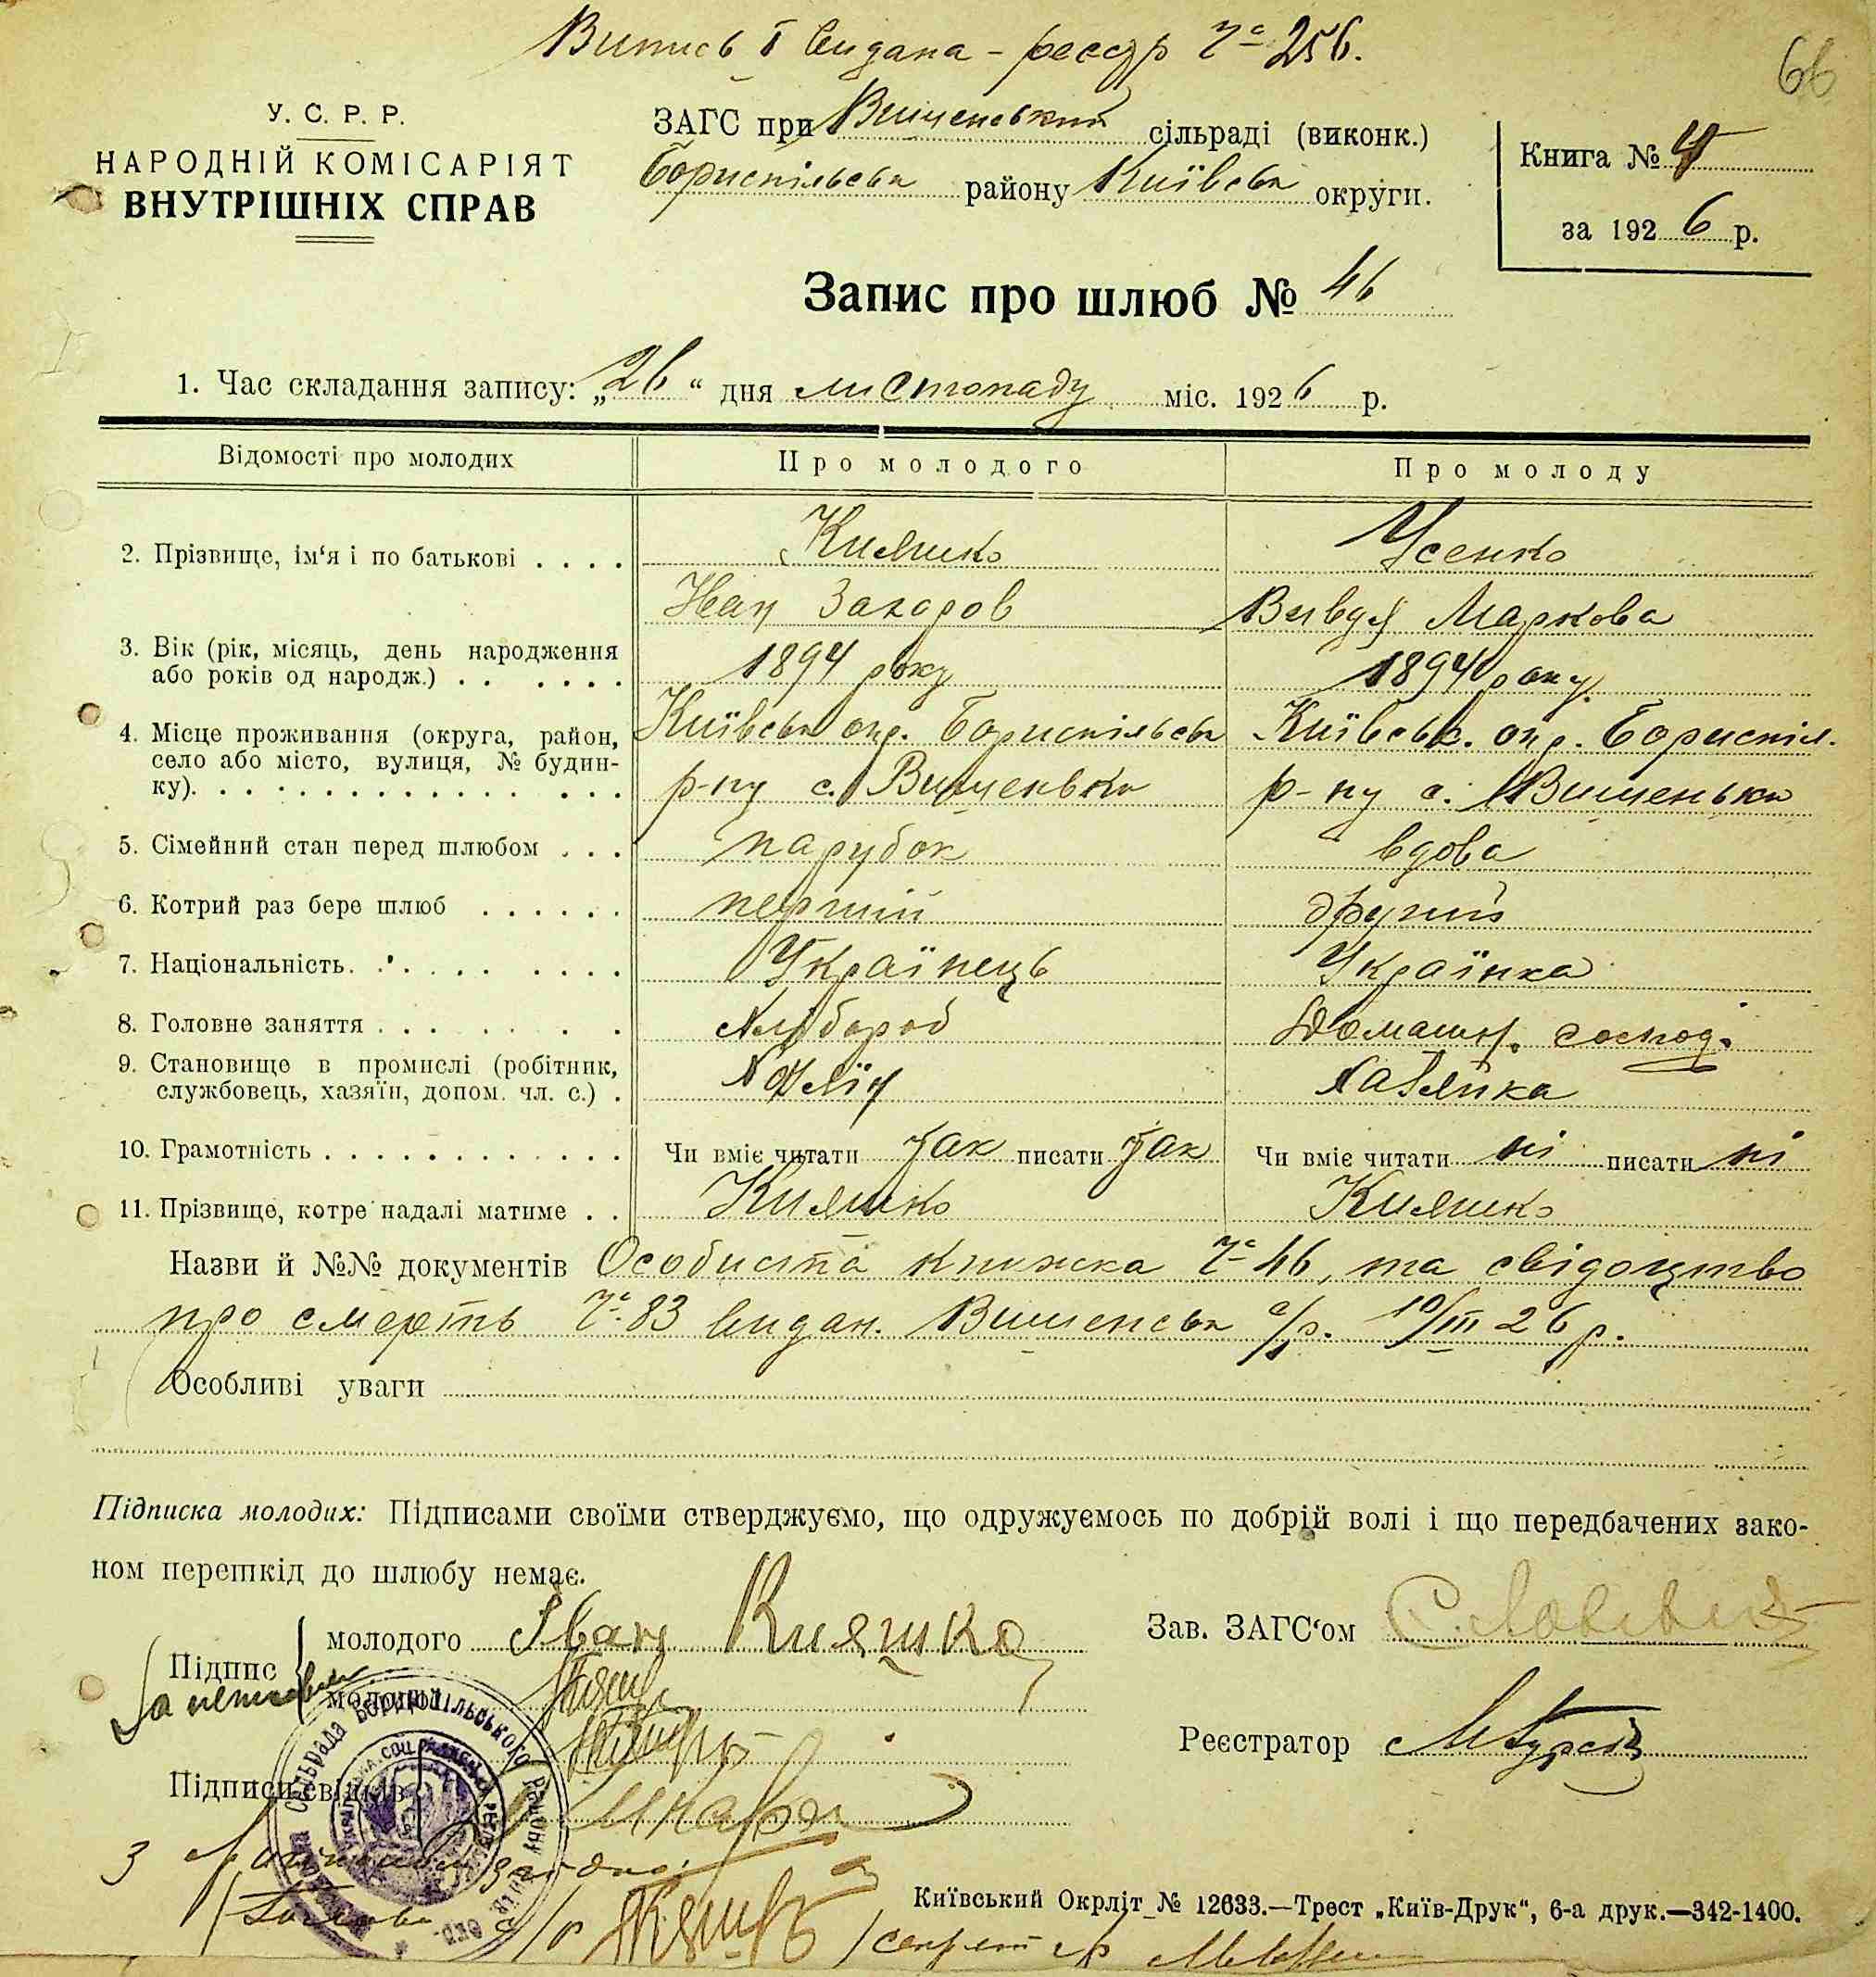 Випись І видана – реєстр Ч 256.
66
У. С. Р. Р.
НАРОДНІЙ КОМІСАРІЯТ
ВНУТРІШНІХ СПРАВ
ЗАГС при Вишенський сільраді (виконк.)
Бориспільськ району Київськ округи.
Книга №
за 1926 р.
Запис про шлюб № 46
1. Час складання запису: „26“ дня листопаду міс. 1926 р.
Відомості про молодих Про молодого Про молоду
2. Прізвище, ім‘я і по батькові . . . . Кияшко Усенко
Іван Захаров Вивдя Маркова
3. Вік (рік, місяць, день народження
або років од народж.) . . . . . . 1894 року 1894 року
4. Місце проживання (округа, район, Київськ окр. Бориспільськ Київськ. окр. Бориспіл.
село або місто, вулиця, № будин-
ку). . . . . . . . . . . . . . . . р-ну с. Вишеньки р-ну с. Вишеньки
5. Сімейний стан перед шлюбом . . . парубок вдова
6. Котрий раз бере шлюб . . . . . . перший другий
7. Національність. . . . . . . . . . Українець Українка
8. Головне заняття . . . . . . . . Хлібороб Домашн. господ.
9. Становище в промислі (робітник,
службовець, хазяїн, допом. чл. с.) . Хазяїн Хазяйка
10. Грамотність . . . . . . . . . . . . . Чи вміє читати так писати так Чи вміє читати ні писати ні
11. Прізвище, котре надалі матиме . . Кияшко Кияшко
Назви й №№ документів Особиста книжка Ч 46, та свідоцтво
про смерть Ч. 83 видан. Вишенськ с/р. 10/III 26 р.
Особливі уваги
Підписка молодих: Підписами своїми стверджуємо, що одружуємось по добрій волі і що передбачених зако-
ном перешкід до шлюбу немає.
Підпис { молодого Іван Кияшко
молодої
Зав. ЗАГС‘ом
Реєстратор
Підписи свідків
З згідно:
Голова с/р секрет с/р
Київський Окрліт № 12633.—Трест „Київ-Друк“, 6-а друк.—342-1400.